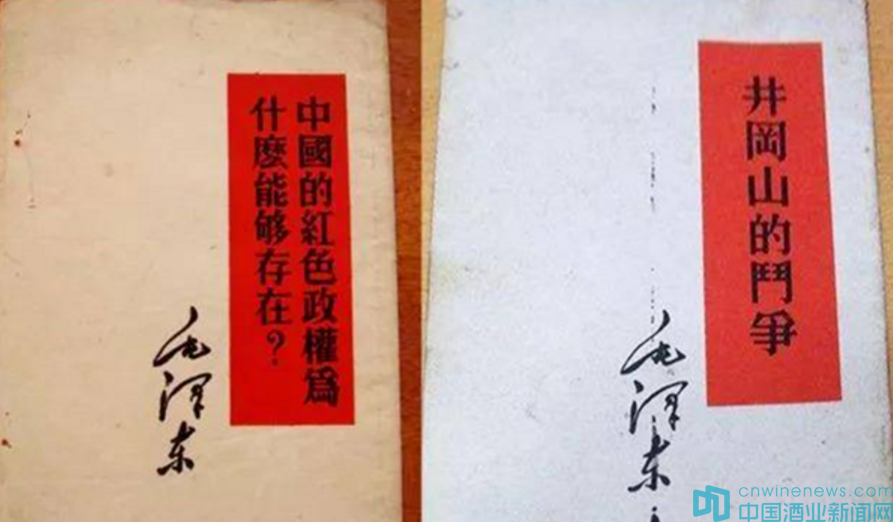 中國的紅色政權爲
什麽能够存在？
毛泽东
井岡山的鬥爭
毛泽东
cnwinenews.com
中国酒业新闻网